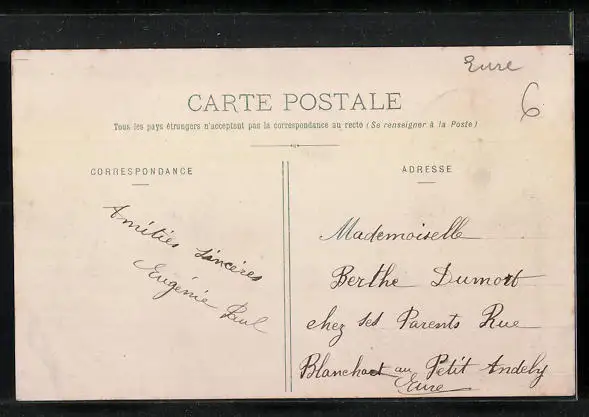 Eure
6
CARTE POSTALE
Tous les pays étrangers n'acceptent pas la correspondance au recto (Se renseigner à la Poste)
CORRESPONDANCE
Amitiés sincères
Eugénie Paul
ADRESSE
Mademoiselle
Berthe Dumont
chez ses Parents Rue
au Petit Andely
Eure